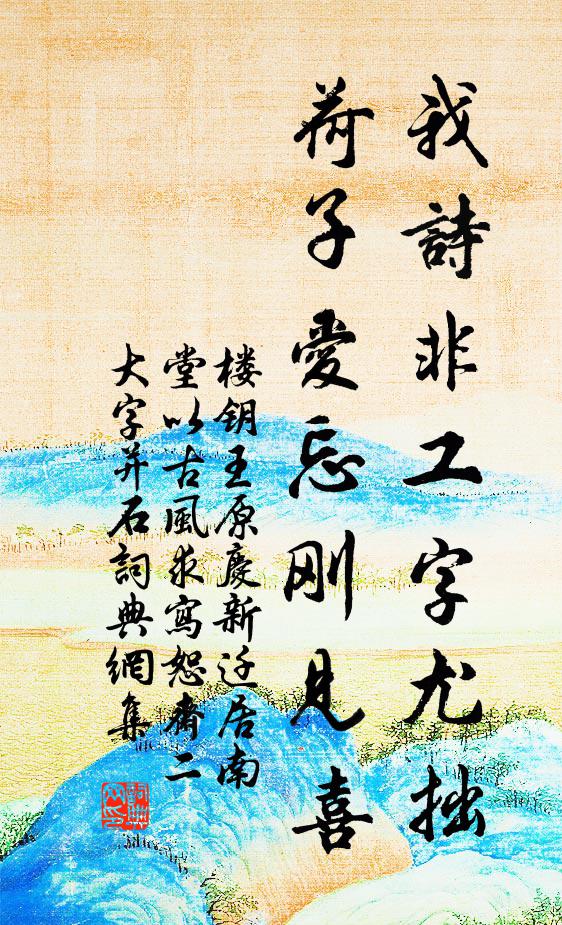 我詩非工字尤拙
荷子愛忘刚見喜
楼钥王原慶新迁居南
堂以古風求寫恕齋二
大字并石詞典網集